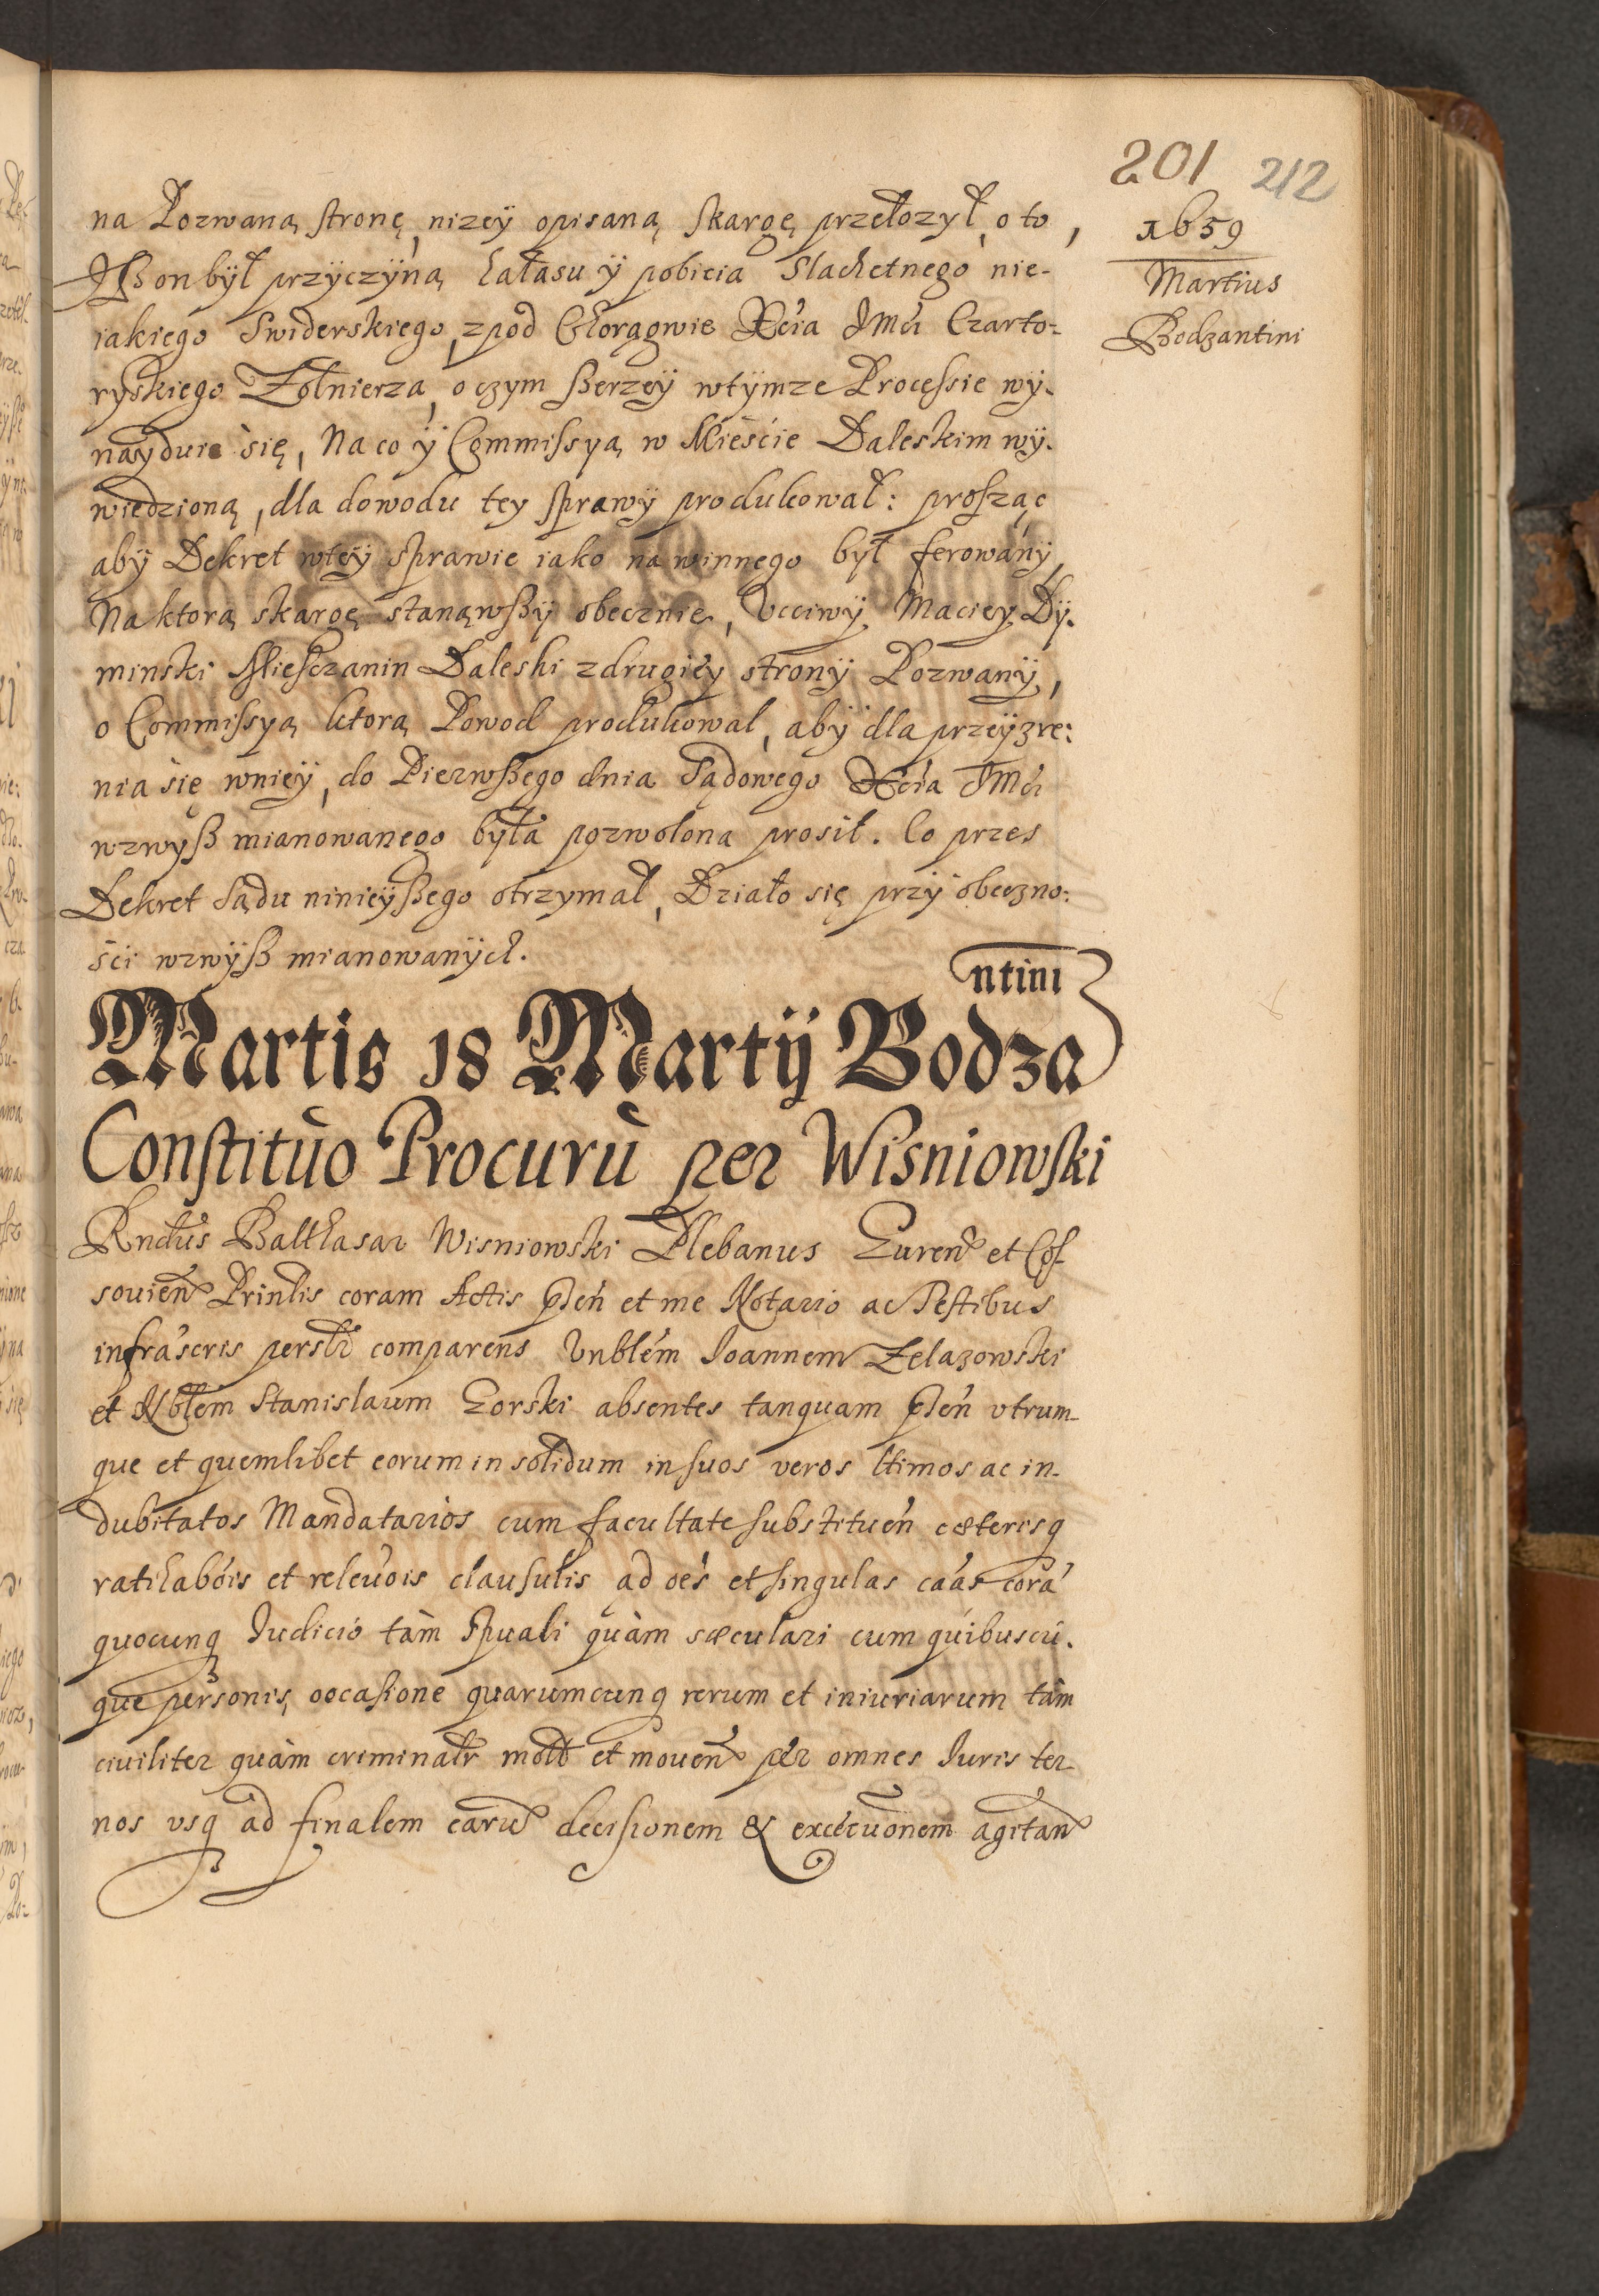 201 212
1659
Martius
Bodzantini
na Pozwaną stronę, nizey opisaną skargę przełozył, o to,
Iß on był przÿczÿną hałasu ÿ pobicia Slachetnego nie-
iakiego Swiderskiego, z pod Chorągwie Xćia JMći Czarto-
ryskiego Zołnierza, o czym ßerzeÿ wtÿmze Processie wÿ-
nayduie się, Na co ÿ Commissyą w Mieście Daleskim wÿ-
wiedzioną, dla dowodu tey sprawÿ produkował: prosząc
abÿ Dekret wteÿ sprawie iako na winnego był ferowany,
Na ktorą skargę stanąwßÿ obecznie, Vcciwÿ Maciey Dÿ-
minski Miesczanin Daleski z drugieÿ stronÿ Pozwanÿ,
o Commissyą ktorą Powod produkowal, abÿ dla przeÿzre:
nia się wnieÿ, do Pierwßego dnia Sądowego Xćia JMći
wzwyß mianowanego była pozwolona prosił. Co przes
Dekret Sądu ninieÿßego otrzymał, Działo się przÿ obeczno:
ści wzwÿß mianowanÿch.
Martis 18 Martij Bodza
ntini
Constituo Procuru per Wisniowski
Rndus Balthasar Wisniowski Plebanus Guren et Cos-
souien Prinlis coram Actis pñtn et me Notario ac Testibus
infrascris persłr comparens Vnblem Ioannem Zelazowski
et Nblem Stanislaum Gorski absentes tanquam pñtn vtrum-
que et quemlibet eorum in solidum in suos veros ltimos ac in-
dubitatos Mandatarios cum facultate substituen cæterisq
ratihabois et releuois clausulis ad oes et singulas caas cora
quocunq Iudicio tàm Spuali quàm sæculari cum quibuscu-
que personis occasione quarumcunq rerum et iniuriarum tàm
ciuiliter quàm criminalr mott et mouen per omnes Iuris ter-
nos vsq ad finalem earu decisionem & execuonem agitan